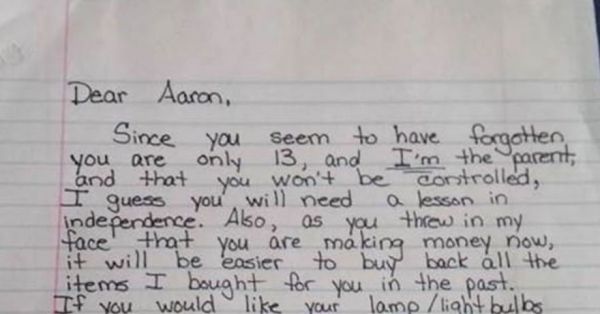 Dear Aaron,
Since you seem to have forgotten
you are only 13, and I'm the parent,
and that you won't be controlled,
I guess you will need a lesson in
independence. Also, as you threw in my
face that you are making money now,
it will be easier to buy back all the
items I bought for you in the past.
If you would like your lamp/lightbulbs